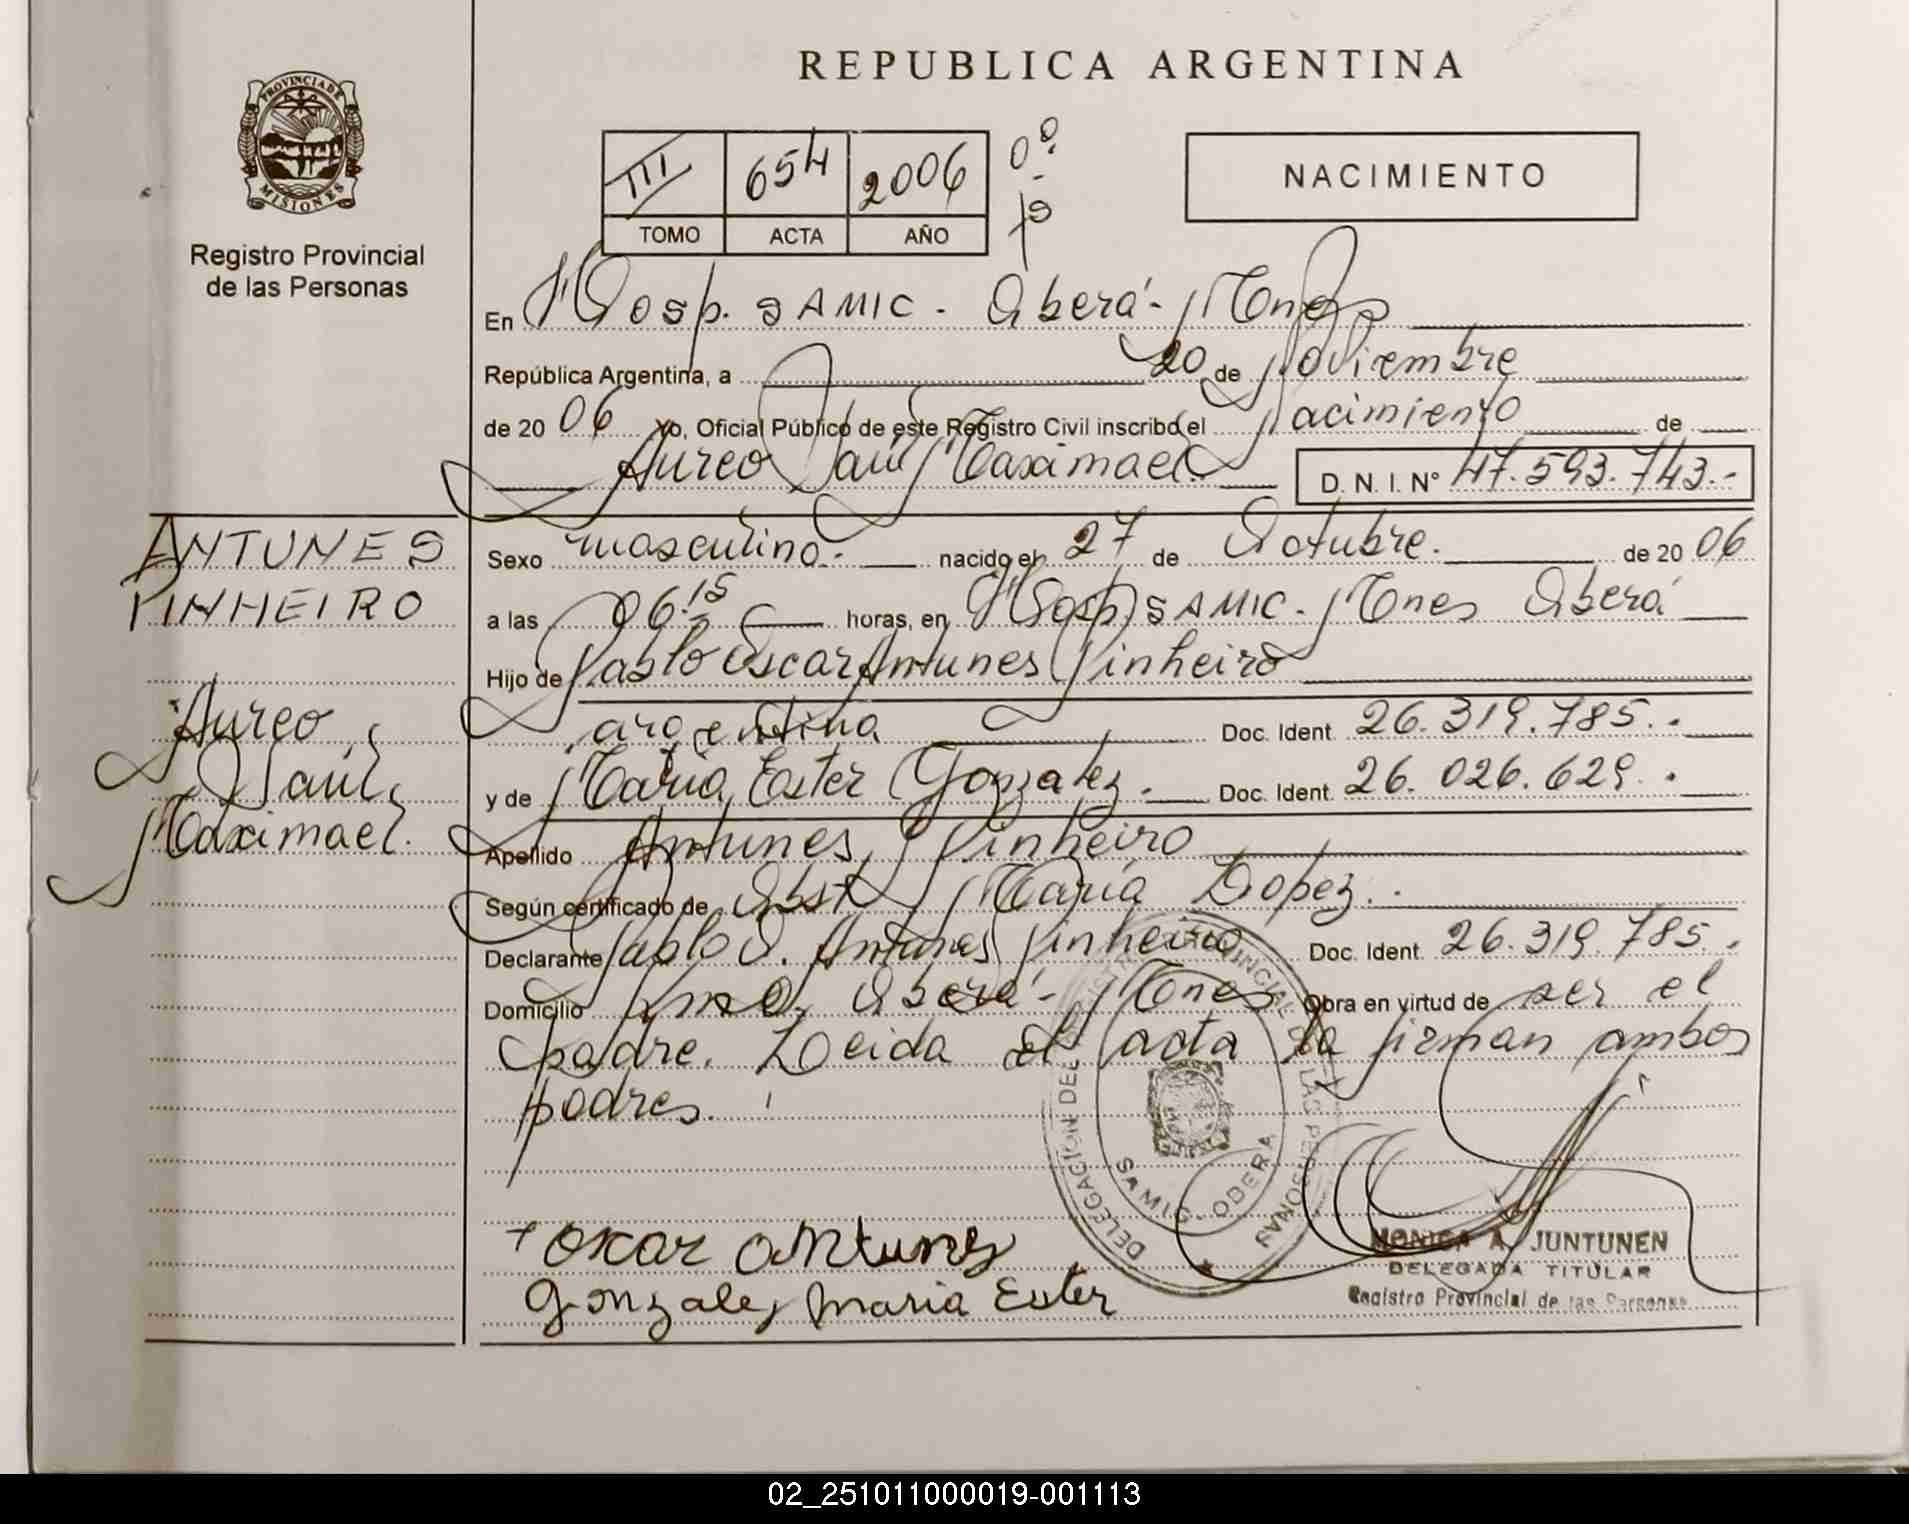 PROVINCIA DE
MISIONES
Registro Provincial
de las Personas
REPUBLICA ARGENTINA
III 654 2006
TOMO ACTA AÑO
NACIMIENTO
En Hosp. SAMIC. Oberá - Mnes
República Argentina, a 20 de Noviembre
de 2006 Yo, Oficial Público de este Registro Civil inscribo el Nacimiento de
Aureo Saúl Maximael D. N. I. N° 47.593.743.-
ANTUNES
PINHEIRO
Aureo
Saúl
Maximael.
Sexo masculino.- nacido el 27 de Octubre. de 2006
a las 06.15 horas, en Hosp SAMIC. Mnes Oberá
Hijo de Pablo Oscar Antunes Pinheiro
argentina Doc. Ident. 26.319.785.-
y de María Ester Gonzalez.- Doc. Ident. 26.026.629.
Apellido Antunes Pinheiro
Según certificado de Obst María Lopez.
Declarante Pablo O. Antunes Pinheiro Doc. Ident. 26.319.785.-
Domicilio Oberá - Mnes Obra en virtud de ser el
padre. Leida el acta la firman ambos
padres.
DELEGACION DEL REGISTRO PROVINCIAL DE LAS PERSONAS
SAMIC - OBERA
Oscar Antunes
Gonzalez Maria Ester
MONICA A. JUNTUNEN
DELEGADA TITULAR
Registro Provincial de las Personas
02_251011000019-001113